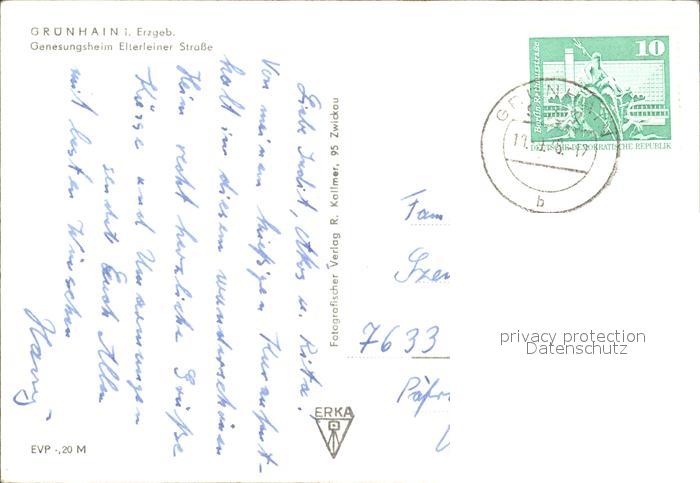 GRÜNHAIN i. Erzgeb.
Genesungsheim Elterleiner Straße
Liebe Judit, Akos u. Rita!
Von meinem hiesigen Kuraufent-
halt in diesem wunderschönen
Heim recht herzliche Grüße
Küsse und Umarmungen
sendet Euch Allen
mit besten Wünschen
Harry
EVP -,20 M
Fotografischer Verlag R. Kallmer, 95 Zwickau
ERKA
10
Berlin Rathausstraße
DEUTSCHE DEMOKRATISCHE REPUBLIK
GRÜNHAIN
b
Fam
Szen
7633
privacy protection
Datenschutz